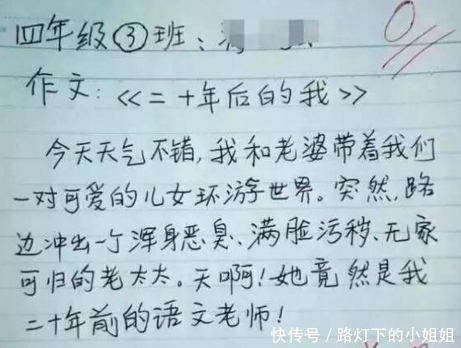 四年级③班:
0
作文:《二十年后的我》
今天天气不错,我和老婆带着我们
一对可爱的儿女环游世界。突然,路
边冲出一个浑身恶臭、满脸污秽、无家
可归的老太太。天啊!她竟然是我
二十年前的语文老师!
快传号/路灯下的小姐姐